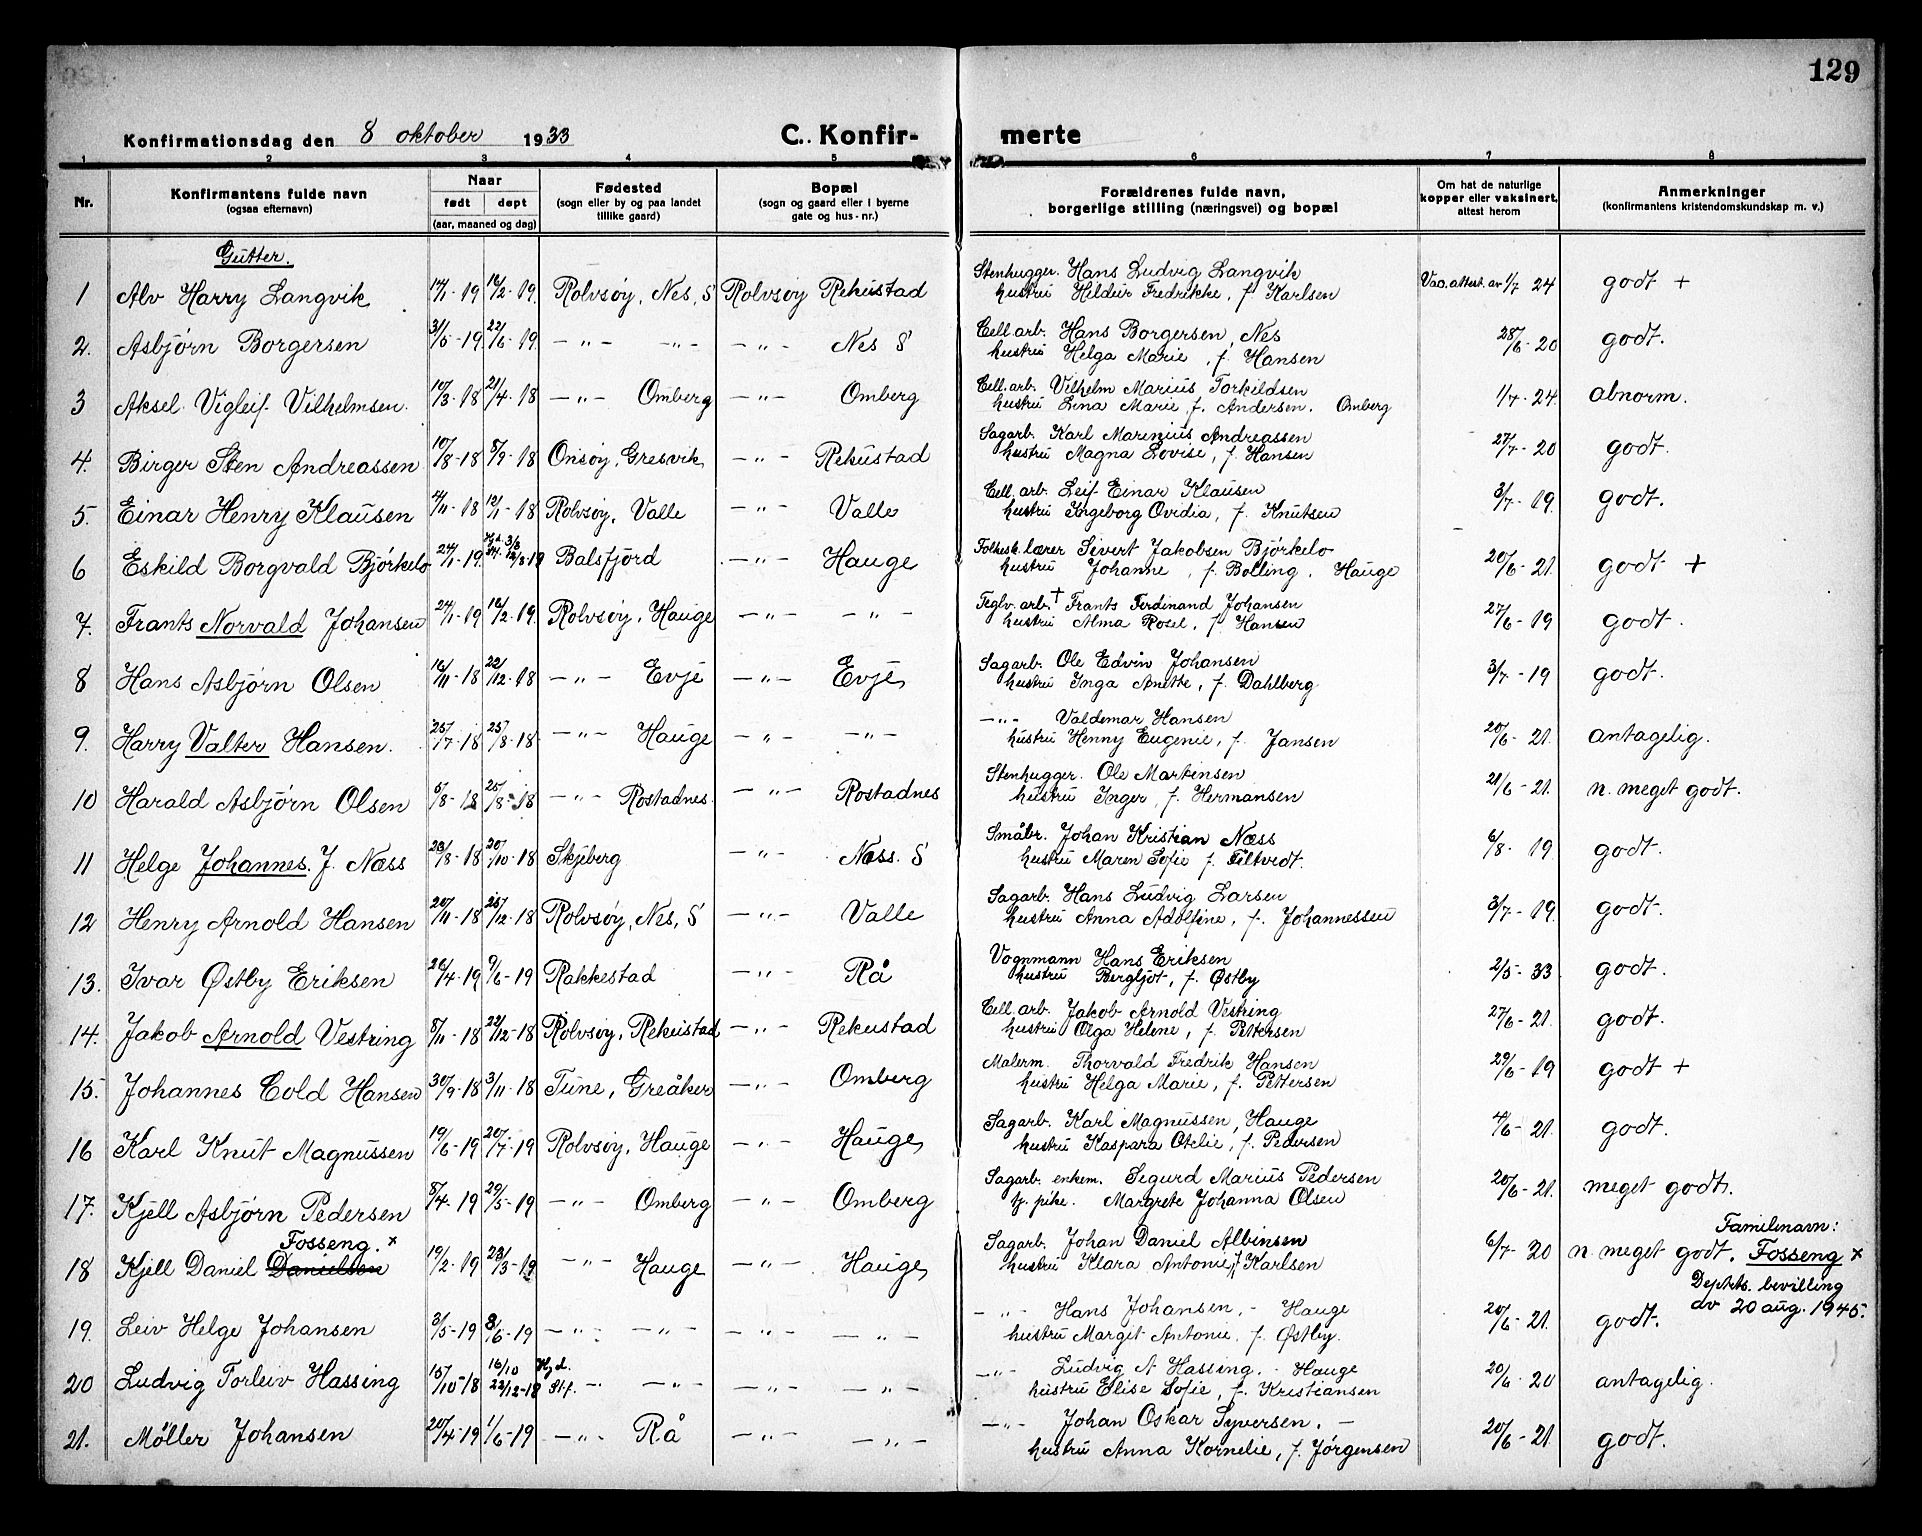 129
Konfirmationsdag den 8 oktober 1933 C. Konfir- merte
1 2 3 4 5 6 7 8
Nr. Konfirmantens fulde navn (ogsaa efternavn) Naar født døpt (aar, maaned og dag) Fødested (sogn eller by og paa landet tillike gaard) Bopæl (sogn og gaard eller i byerne gate og hus-nr.) Forældrenes fulde navn, borgerlige stilling (næringsvei) og bopæl Om hat de naturlige kopper eller vaksinert, attest herom Anmerkninger (konfirmantens kristendomskundskap m. v.)
Gutter.
1 Alv Harry Langvik 14/1-19 16/2-19. Rolvsøy, Nes, S Rolvsøy Rekustad Stenhugger. Hans Ludvig Langvik Vac.attest. av 1/7 24 godt +
hustru Hildur Fredrikke, f. Karlsen
2. Asbjørn Borgersen 31/5-19 22/6-19. -"- -"- -"- Nes S Cell.arb. Hans Borgersen, Nes 28/6-20 godt.
hustru Helga Marie, f. Hansen
3 Aksel Vigleif Vilhelmsen. 10/3-18 21/4-18 -"- Omberg -"- Omberg Cell.arb. Vilhelm Marius Torkildsen 1/7-24. abnorm.
hustru Lina Marie f. Andersen. Omberg
4. Birger Sten Andreassen 10/8-18 8/9-18 Onsøy, Gresvik -"- Rekustad Sagarb. Karl Marinius Andreassen 27/7-20 godt.
hustru Magna Lovise, f. Hansen
5. Einar Henry Klausen 4/11-18 12/1-18 Rolvsøy, Valle -"- Valle Cell.arb. Leif Einar Klausen 3/7-19. godt.
hustru Ingeborg Ovidia, f. Knutsen
6 Eskild Borgvald Bjørkelo 24/1-19. Hjd. 3/3 St. 12/8-19 Balsfjord -"- Hauge Folkesk.lærer Sivert Jakobsen Bjørkelo 20/6-21. godt +
hustru Johanne, f. Bolling. Hauge
7. Frants Norvald Johansen 24/1-19 16/2-19. Rolvsøy, Hauge -"- -"- Teglv.arb. + Frants Ferdinand Johansen 27/6-19 godt.
hustru Alma Rosel, f. Hansen
8 Hans Asbjørn Olsen 16/11-18 22/12-18 -"- Evje -"- Evje Sagarb. Ole Edvin Johansen 3/7-19 godt.
hustru Inga Anette, f. Dahlberg
9. Harry Valter Hansen. 25/7-18 25/8-18 -"- Hauge -"- -"- -"- Valdemar Hansen 20/6-21. antagelig.
hustru Henny Eugenie, f. Jansen
10 Harald Asbjørn Olsen 5/8-18 25/8-18 -"- Rostadnes. -"- Rostadnes Stenhugger. Ole Martinsen 21/6-21. n. meget godt.
hustru Inger, f. Hermansen
11 Helge Johannes. J. Næss 23/8-18 20/10-18 Skjeberg -"- Næss. S Småbr. Johan Kristian Næss 6/8-19. godt.
hustru Maren Sofie f. Filtvedt.
12 Henry Arnold Hansen 20/11-18 25/12-18 Rolvsøy, Nes, S -"- Valle Sagarb. Hans Ludvig Larsen 3/7-19. godt.
hustru Anna Adolfine, f. Johannessen
13. Ivar Østby Eriksen 26/4-19 9/6-19 Rakkestad -"- Rå Vognmann Hans Eriksen 2/5-33 godt.
hustru Bergljot, f. Østby
14. Jakob Arnold Vestring 8/11-18 22/12-18 Rolvsøy, Rekustad -"- Rekustad Cell.arb. Jakob Arnold Vestring 27/6-21. godt.
hustru Olga Helene, f. Pettersen
15. Johannes Cold Hansen 30/9-18 3/11-18 Tune, Greåker -"- Omberg Malerm. Thorvald Fredrik Hansen 29/6-19 godt +
hustru Helga Marie, f. Pettersen
16 Karl Knut Magnussen 19/6-19 20/7-19 Rolvsøy, Hauge -"- Hauge Sagarb. Karl Magnussen, Hauge 4/6-21. godt.
hustru Kaspara Otelie, f. Pedersen
17. Kjell Asbjørn Pedersen 8/4-19 29/5-19 -"- Omberg -"- Omberg Sagarb. enkem. Sigurd Marius Pedersen 20/6-21. meget godt.
tj. pike. Margrete Johanna Olsen
Fosseng. x Familienavn:
18 Kjell Daniel Danielsen 19/2-19 23/3-19 -"- Hauge -"- Hauge Sagarb. Johan Daniel Albinsen 6/7-20 n. meget godt. Fosseng x
hustru Klara Antonie, f. Karlsen Deptets. bevilling
av 20 aug. 1945.
19. Leiv Helge Johansen 3/5-19 8/6-19 -"- -"- -"- -"- -"- Hans Johansen, - Hauge 20/6-21. godt.
hustru Margit Antonie. f. Østby.
20 Ludvig Torleiv Hassing 15/10-18 16/10 22/12-18 Hj.d. St.f. -"- -"- -"- -"- -"- Ludvig A Hassing. - Hauge 20/6-20 antagelig.
hustru Elise Sofie, f. Kristiansen
21. Møller Johansen 20/4-19 1/6-19 -"- Rå -"- -"- -"- Johan Oskar Syversen. - 20/6-21. godt.
hustru Anna Kornelie, f. Jørgensen